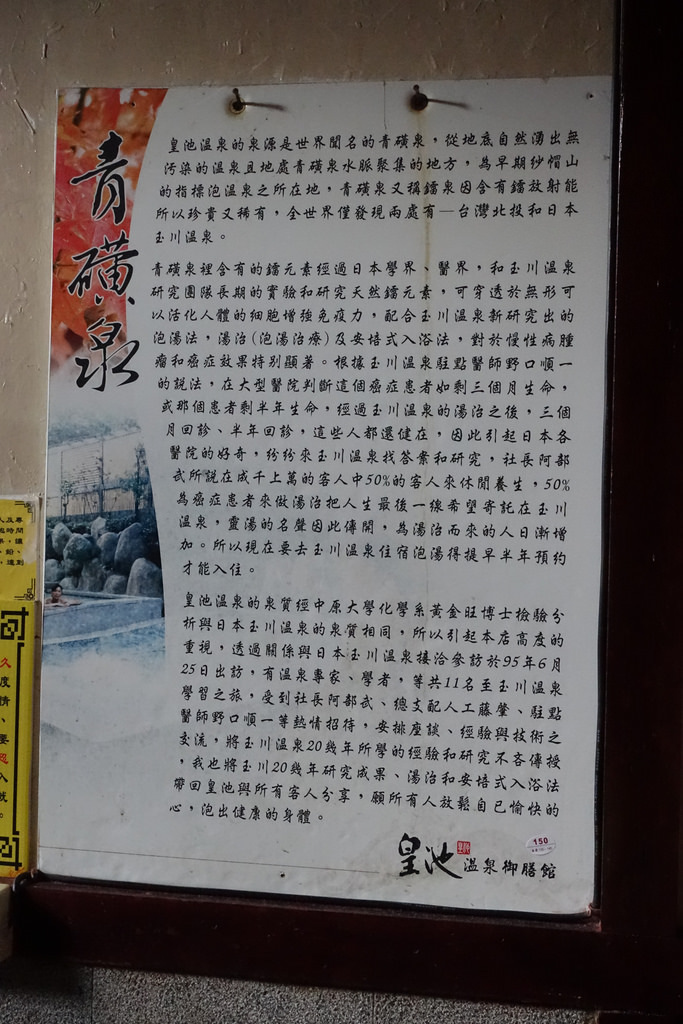 青磺泉
皇池溫泉的泉源是世界聞名的青磺泉，從地底自然湧出無
污染的溫泉且地處青磺泉水脈聚集的地方，為早期紗帽山
的指標泡溫泉之所在地，青磺泉又稱鐳泉因含有鐳放射能
所以珍貴又稀有，全世界僅發現兩處有—台灣北投和日本
玉川溫泉。
青磺泉裡含有的鐳元素經過日本學界、醫界，和玉川溫泉
研究團隊長期的實驗和研究天然鐳元素，可穿透於無形可
以活化人體的細胞增強免疫力，配合玉川溫泉新研究出的
泡湯法，湯治(泡湯治療)及安培式入浴法，對於慢性病腫
瘤和癌症效果特別顯著。根據玉川溫泉駐點醫師野口順一
的說法，在大型醫院判斷這個癌症患者如剩三個月生命，
或那個患者剩半年生命，經過玉川溫泉的湯治之後，三個
月回診、半年回診，這些人都還健在，因此引起日本各
醫院的好奇，紛紛來玉川溫泉找答案和研究，社長阿部
武所說在成千上萬的客人中50%的客人來休閒養生，50%
為癌症患者來做湯治把人生最後一線希望寄託在玉川
溫泉，靈湯的名聲因此傳開，為湯治而來的人日漸增
加。所以現在要去玉川溫泉住宿泡湯得提早半年預約
才能入住。
皇池溫泉的泉質經中原大學化學系黃金旺博士檢驗分
析與日本玉川溫泉的泉質相同，所以引起本店高度的
重視，透過關係與日本玉川溫泉接洽參訪於95年6月
25日出訪，有溫泉專家、學者，等共11名至玉川溫泉
學習之旅，受到社長阿部武、總支配人工藤肇、駐點
醫師野口順一等熱情招待，安排座談、經驗與技術之
交流，將玉川溫泉20幾年所學的經驗和研究不吝傳授
，我也將玉川20幾年研究成果、湯治和安培式入浴法
帶回皇池與所有客人分享，願所有人放鬆自己愉快的
心，泡出健康的身體。
皇池溫泉御膳館
150